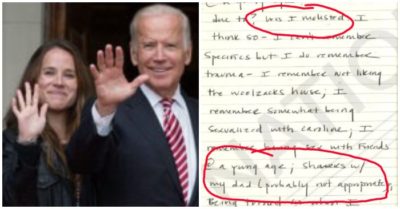 due to? Was I molested. I
think so - I can't remember
Specifics but I do remember
trauma - I remember not liking
the woolzacks house; I
remember somewhat being
sexualized with caroline; I
remember sex with friends
@ a young age; showers w/
my dad (probably not appropriate).
Being when I